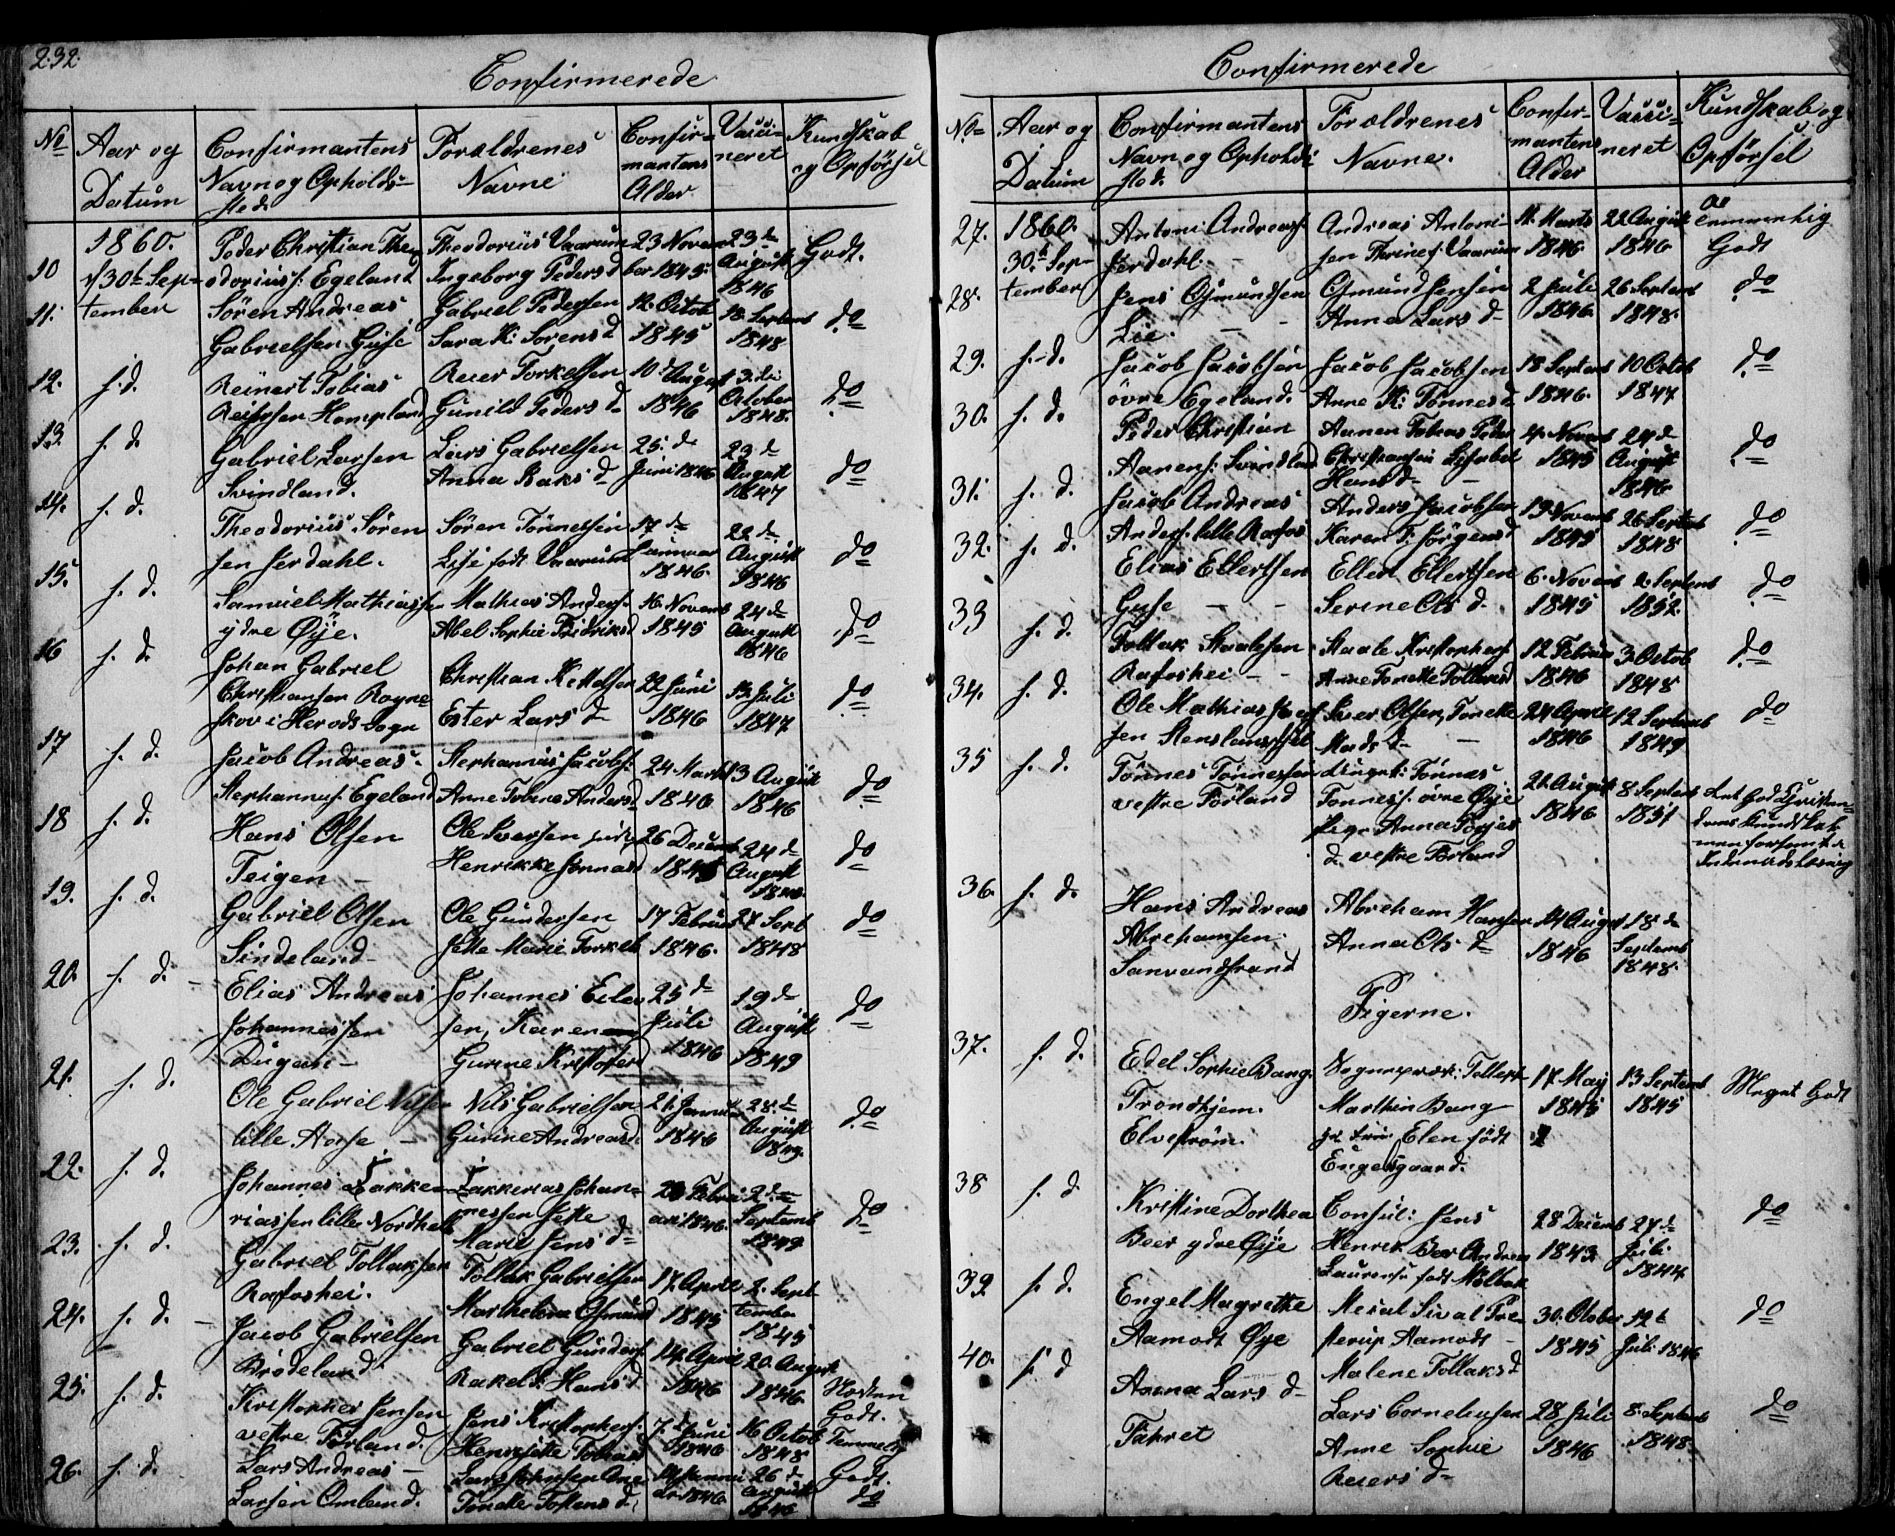 232.
Confirmerede
No
Aar og
Datum
Confirmantens
Navn og Opholds-
sted
Forældrenes
Navne
Confir-
mantens
Alder
Vacci-
neret
Kundskab
og Opførsel
10
1860.
30te Sep-
tember
Peder Christian The-
odoriuss: Egeland
Theodorius Vaarum
Ingeborg Peders d
23 Novem-
ber 1845.
23de
August
1846
Godt.
11.
Sören Andreas
Gabrielsen Gyse
Gabriel Pedersen
Sara K: Sørens d
12. Octob
1845
18. Septemb
1848
do
12.
s. d.
Reinert Tobias
Reiersen Hompland
Reier Torkelsen
Gunild Peders d
10de August
1846
13de
October
1848.
do
13.
s. d.
Gabriel Larsen
Svindland.
Lars Gabrielsen
Anna Baks d
25. d
Juni 1846
23 d
August
1847
do
14.
s. d.
Theodorius Sören
sen Jerdahl.
Sören Tönnessen
Lise født Vaarum
17 de
Januar
1846.
22 d
August
1846
do
15.
s. d.
Samuel Mathiassen
ydre Øye.
Mathias Anders:
Abel Sophie Fridriks d
16 Novemb
1845
24 d
August
1846
do
16
s. d.
Johan Gabriel
Christiansen Rogne
skov i Herods Sogn
Christian Ketelsen
Ester Lars d
22 Juni
1846
13. Juli
1847
do
17
s. d.
Jacob Andreas
Stephanus: Egeland
Stephannus Jacobs:
Anne Tobine Anders d
24 Marts
1846
13 August
1846
do
18
s. d.
Hans Olsen
Teigen -
Ole Sversen
Henrikke Jonnas d
26 Decemb
1845
24 d
August
1846.
do
19.
s. d.
Gabriel Olsen
Sindeland
Ole Gundersen
Jette Marie Torkels
17 Februar
1846.
27 Sept
1848
do
20.
s. d.
Elias Andreas
Johannessen
Dugan -
Johannes Eilev
sen, Karen
Gurine Kristofer d
25 d
Juli
1846
19 d
August
1849
do
21.
s. d.
Ole Gabriel Nilsen
lille Aorse -
Nils Gabrielsen
Gurine Andreas d
21. Januar
1846
28. d
August
1849.
do
22.
s. d.
Johannes Zakke-
riassen lille Nordhels
Zakkerias Johan-
nessen Jette
Marie Jens d
28 Febru-
ari 1846
2. d
Septemb
1849
do
23.
s. d.
Gabriel Tollaksen
Rafoshei.
Tollak Gabrielsen
Marthelena Osmund d
17. April
1845
2. Sept
tember
1845
24.
s. d.
Jacob Gabrielsen
Brödeland
Gabriel Gunders:
Rakel Hans d
14. April
1846
20. August
1846
Næsten
Godt.
25.
s. d.
Kristopher Jensen
vestre Førland
Jens Kristophers:
Henrijette Tobias d
7. d Juni
1846
16 Octob
1848
Temmelig
Godt.
26.
s. d.
Lars Andreas -
Larsen Omland.
Lars Johnsen Ane
Tonette Tostens d
14 Janu
ar 1846
26 d
August
1846
do
Confirmerede
No
Aar og
Datum
Confirmantens
Navn og Opholds-
sted.
Forældrenes
Navne.
Confir-
mantens
Alder
Vacci-
neret
Kundskab og
Opførsel
27.
1860.
30te Sep-
tember
Antoni Andreas:
Jerdahl. -
Andreas Antoni-
sen Thrines: Vaarum
11. Marts
1846
22 August
1846
Temmelig
Godt
28.
Jens Osmundsen
Lie. -
Osmund Jensen
Anna Lars d
2 Juli
1846
26 Septemb
1848
do
29.
s. d.
Jacob Jacobsen
övre Egeland.
Jacob Jacobsen
Anne K: Tönnes d
18 Septemb
1846.
10 Octob
1847
do
30.
s. d.
Peder Christian
Aanens: Svindland
Aanen Tobias Peder
Christiansen Lisabet
Hans d -
4. Novemb
1845
24 d
August
1846
do
31.
s. d.
Jacob Andreas
Anders: lille Rafos
Anders Jacobsen
Karen T: Jörgens d
19 Novemb
1845
26 Septemb
1848
do
32.
s. d.
Elias Ellertsen
Gyse -
Ellert Ellertsen
Serine Ols d.
6. Novemb
1845
2. Septemb
1852.
do
33
s. d.
Tollak Staalesen
Rafoshei -
Staale Kristophers:
Anne Tonette Tollevs d
12 Februar
1846
3. Octob
1848
do
34.
s. d.
Ole Mathias
sen
Sver Olsen, Toneke
Mads d -
24 April
1846
12 Septemb
1849
do
35
s. d.
Tønnes Tønnessen
vestre Förland
Ungk: Tønnes
Tønness: övre Øye
Pige Anna Torjes
d vestre Förland
21. August
1846
8 Septemb
1851
God Christen-
doms Kundskab
men forsømt i
Indenadslæsning
36.
s. d.
Hans Andreas
Abrehamsen.
Sanvandstrand
Abreham Hansen
Anna Ols d
14 August
1846
18 d
Septemb
1848.
Pigerne.
37.
s. d.
Edel Sophie Bang
Trondhjem.
Elveström.
Sognepræst: Tollef
Marthin Bang
Elen födt
Engelsgaard.
17. May
1845
13 Septemb
1845
Meget Godt
38
s. d
Kristine Dorthea
Beer ydre Øye
Consul: Jens
Henrik Beer Andrea
Laurense født Mølbak
28 Decemb
1843
27 d
Juli
1844
do
39.
s. d.
Engel Magrethe
Aamodt Øye
Pre-
sterup Aamodt -
Malene Tollaks d
30. October
1845
12 t
Juli 1846
do
40.
s. d
Anna Lars d
Fahret
Lars Corneliusen
Anne Sophie
Reiers d
28 Juli
1846
8. Septemb
1848
do